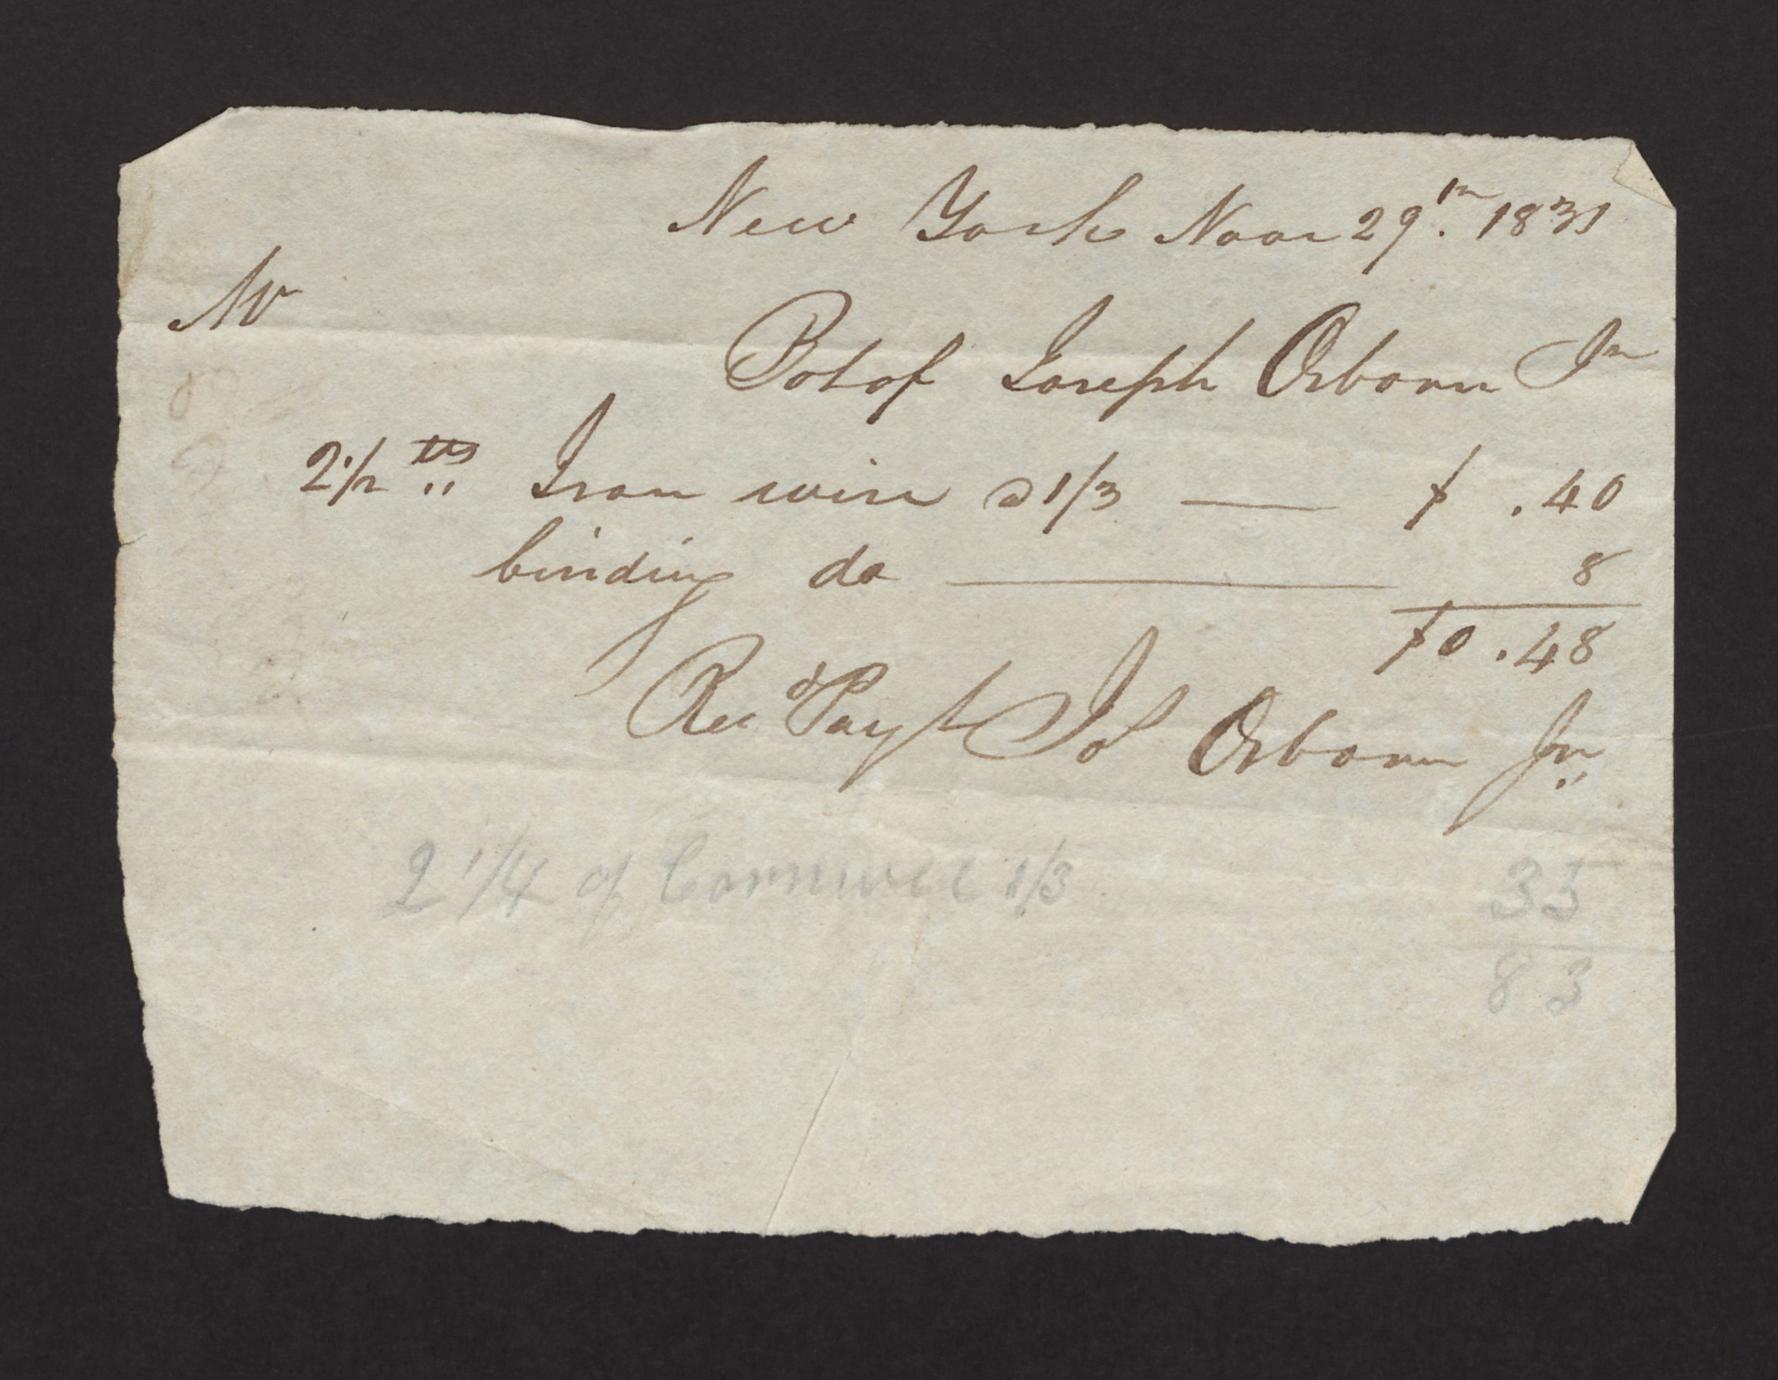 New York Novr 29th 1831
Mr
Bot of Joseph Osborn Jr
2 1/2 lbs Iron wire a 1/3 — $ .40
binding do — 8
$0 .48
Recd Payt Jos Osborn Jr
2 1/4 of Cornwell 1/3 35
83